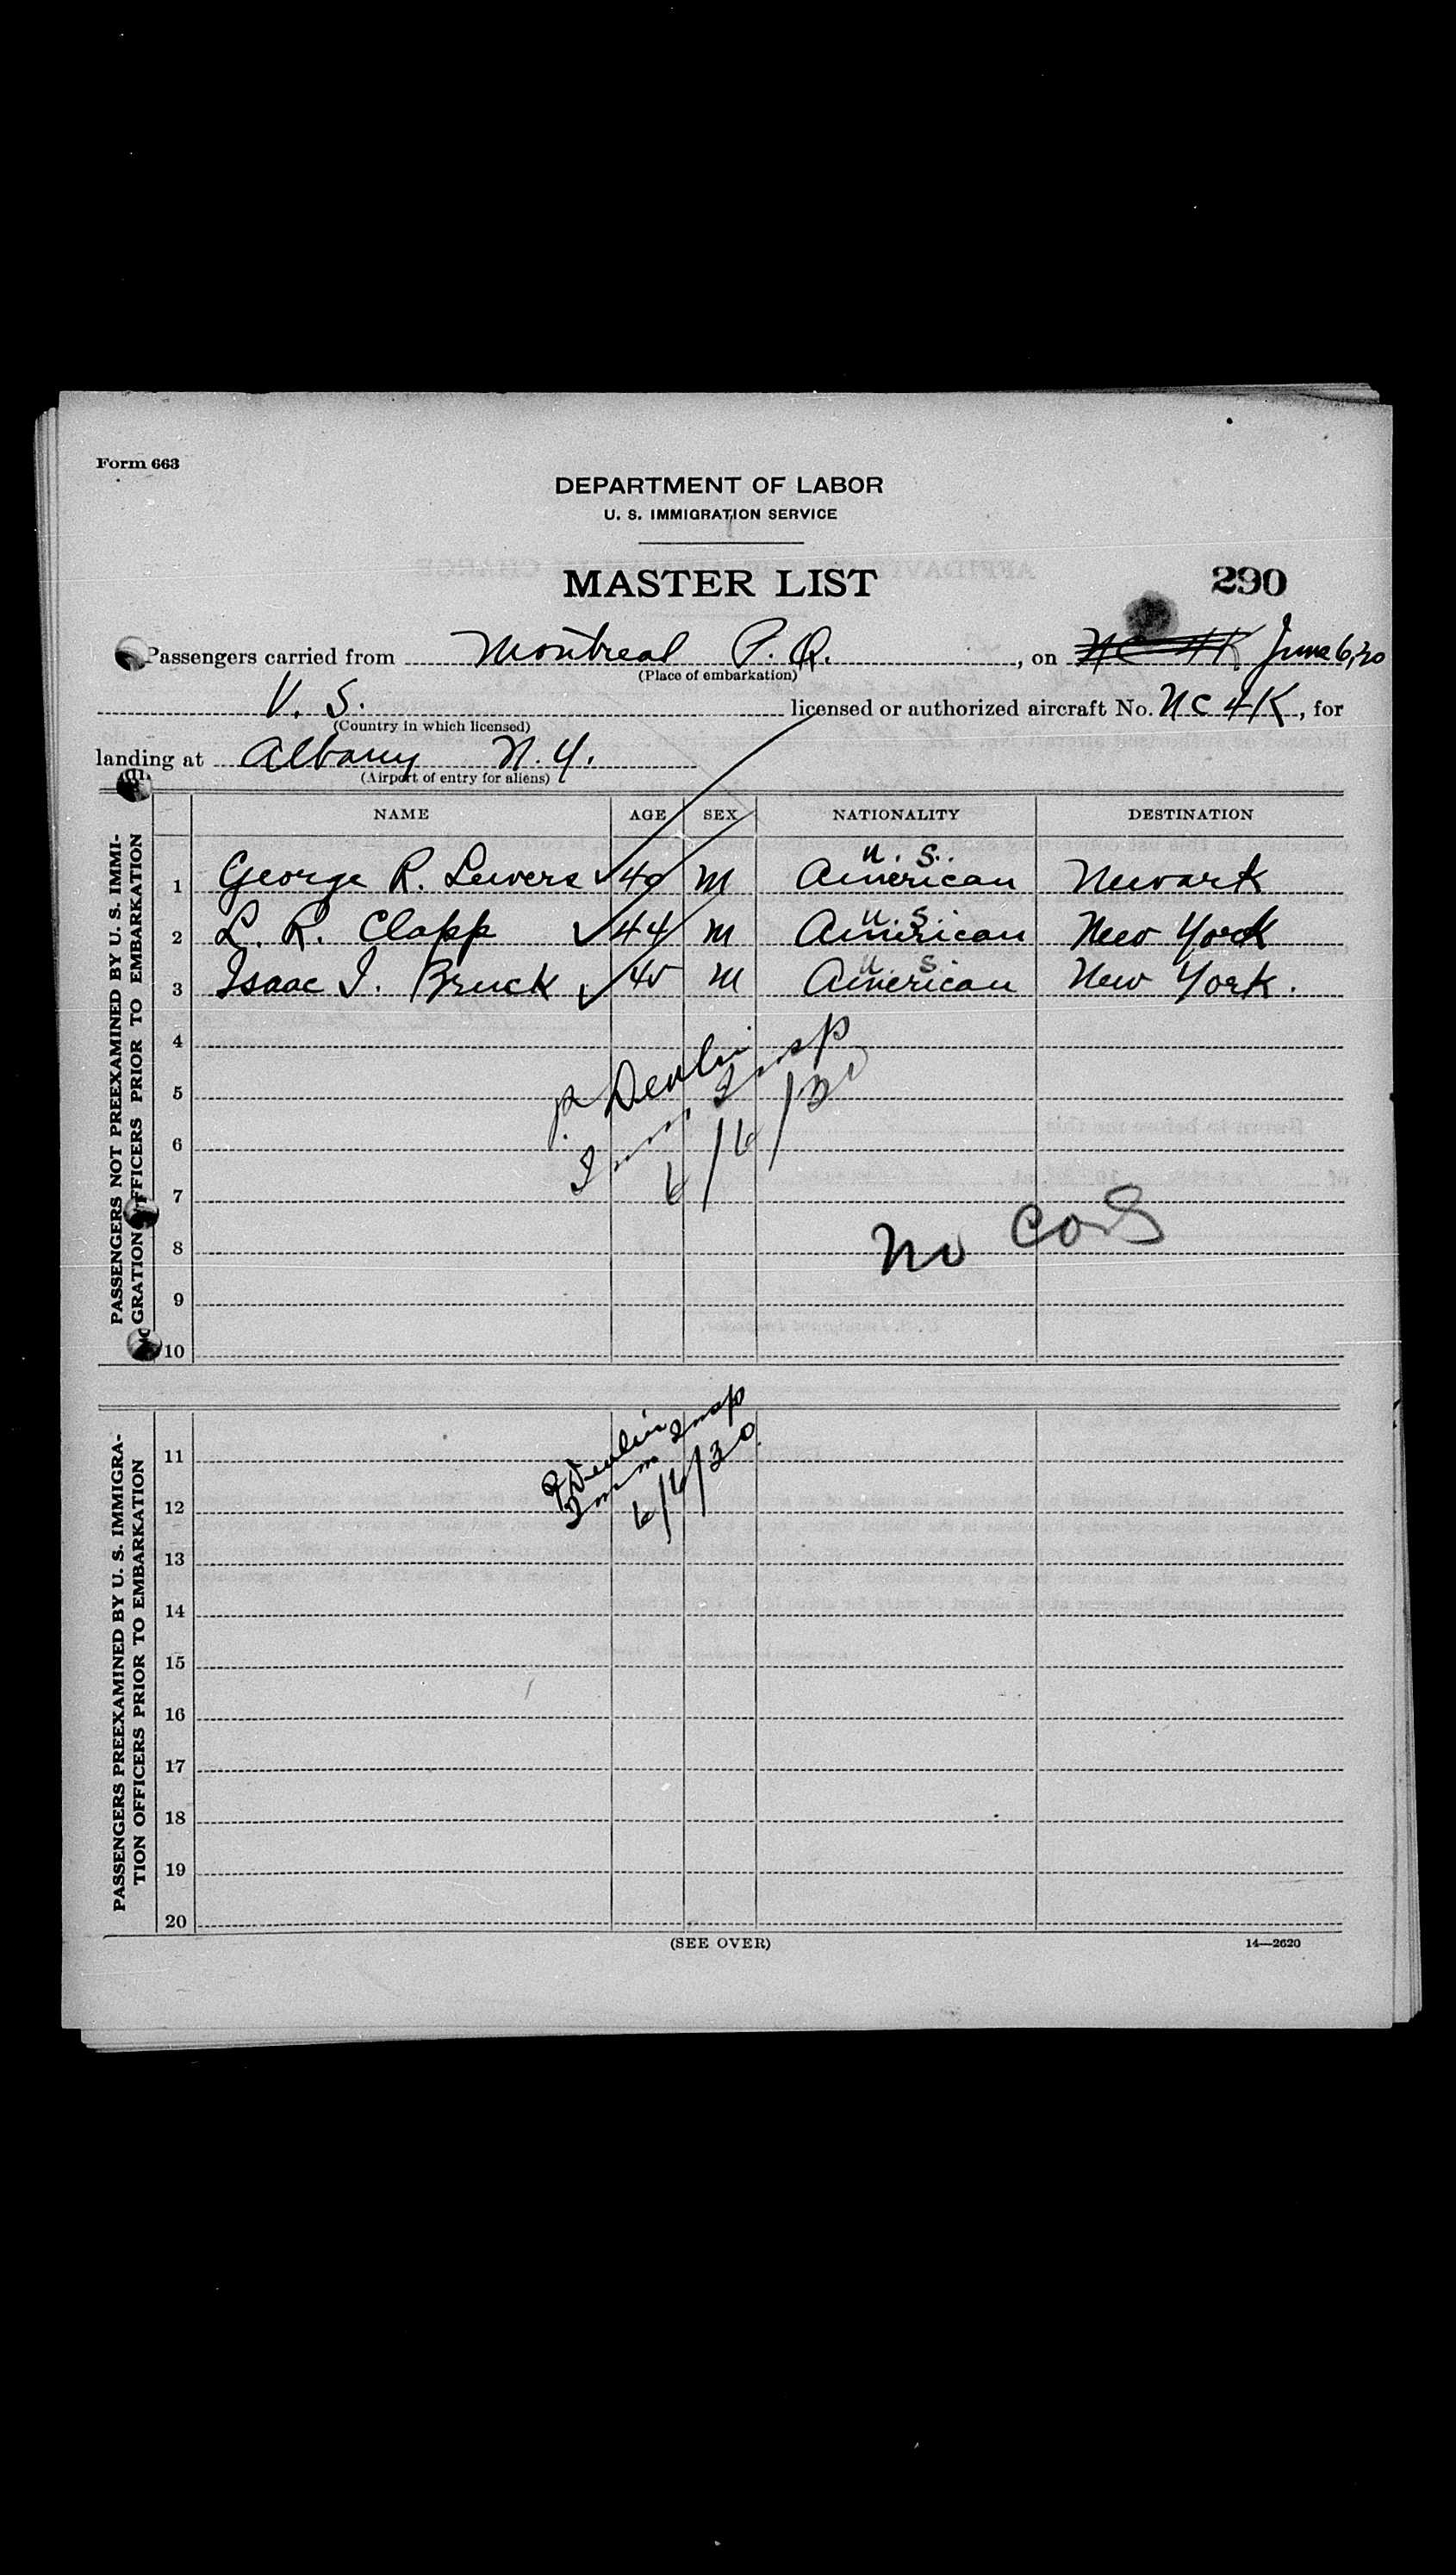 Form 663
DEPARTMENT OF LABOR
U. S. IMMIGRATION SERVICE
MASTER LIST
290
Passengers carried from Montreal P. Q. , on June 6, 30
(Place of embarkation)
U. S. licensed or authorized aircraft No. NC 4K, for
(Country in which licensed)
landing at Albany N. Y.
(Airport of entry for aliens)
NAME AGE SEX NATIONALITY DESTINATION
PASSENGERS NOT PREEXAMINED BY U. S. IMMI-
GRATION OFFICERS PRIOR TO EMBARKATION
U. S.
1 George R. Lewers 40 M American Newark
U. S.
2 L. R. Clapp 44 M American New York
U. S.
3 Isaac I. Bruck 45 M American New York.
4
5
6
7
8
9
10
P. Devlin
Imm. Insp
6/6/30
No
PASSENGERS PREEXAMINED BY U. S. IMMIGRA-
TION OFFICERS PRIOR TO EMBARKATION
11
12
13
14
15
16
17
18
19
20
P Devlin
Imm Insp
6/6/30
(SEE OVER)
14—2620